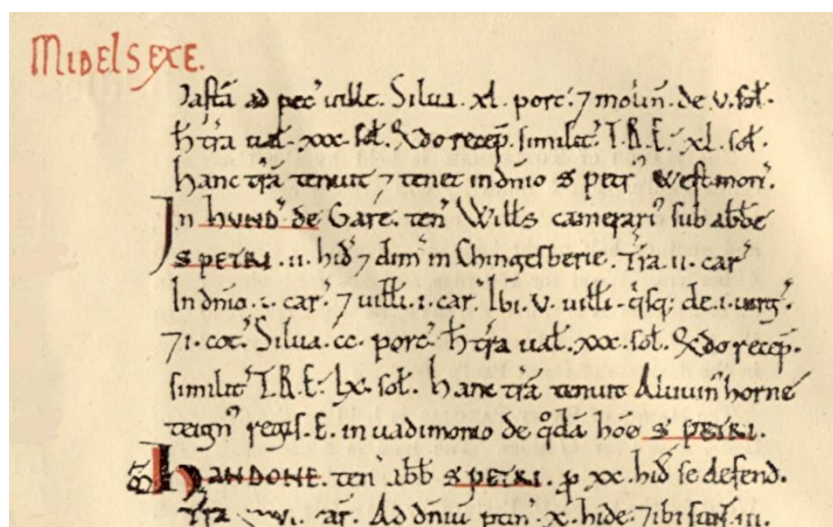 MIDELSEXE.
Pastā ad pec̄ uillæ. Silua. xl. porc̄. ⁊ molin̄. de. v. sol̄.
H̄ tr̄a ual̄. xxx. sol̄. Q̄do recep̄. similit̄. T.R.E.' xl. sol̄.
Hanc tr̄ā tenuit ⁊ tenet in dn̄io S petr̄ Westmon̄.
In HUND̄ de Gare. ten̄ Willˢ camerari᾽ sub abb̄e
S PETRI. ii. hid̄ ⁊ dim̄ in Chingesberie. Tr̄a. ii. car̄
In dn̄io. car̄. ⁊ uilli. i. car̄. Ibi. v. uilli. q̄sq; de. i. uirg̃.
⁊ i. cot̄. Silua. cc. porc̄. H̄ tr̄a ual̄. xxx. sol̄. Q̄do recep̄.
similit̄. T.R.E.' lx. sol̄. Hanc tr̄ā tenuit Aluuin᾽ horne
teign᾽ regis. E. in uadimonio de q̄dā hōe S PETRI.
HANDONE. ten̄ abb̄ S PETRI. p̄ xx. hid̄ se defend̄.
Tr̄a xvi. car̄. Ad dn̄iū ptin̄. x. hidæ. ⁊ ibi sun̄t. iii.